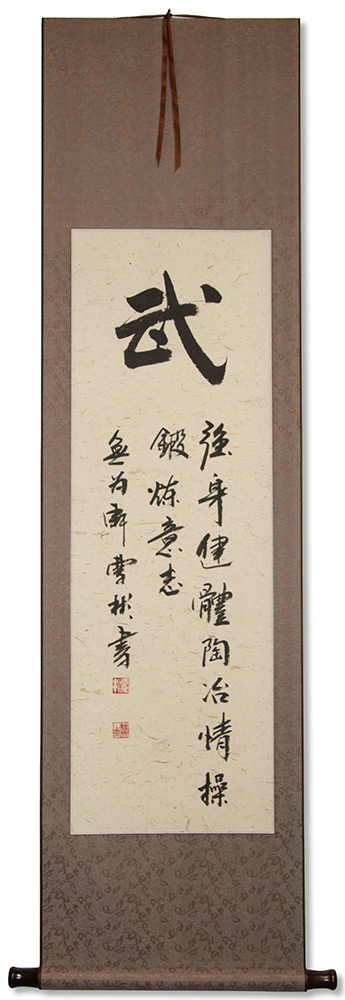 武
強身健體陶冶情操
鍛炼意志
無為軒曹彬書